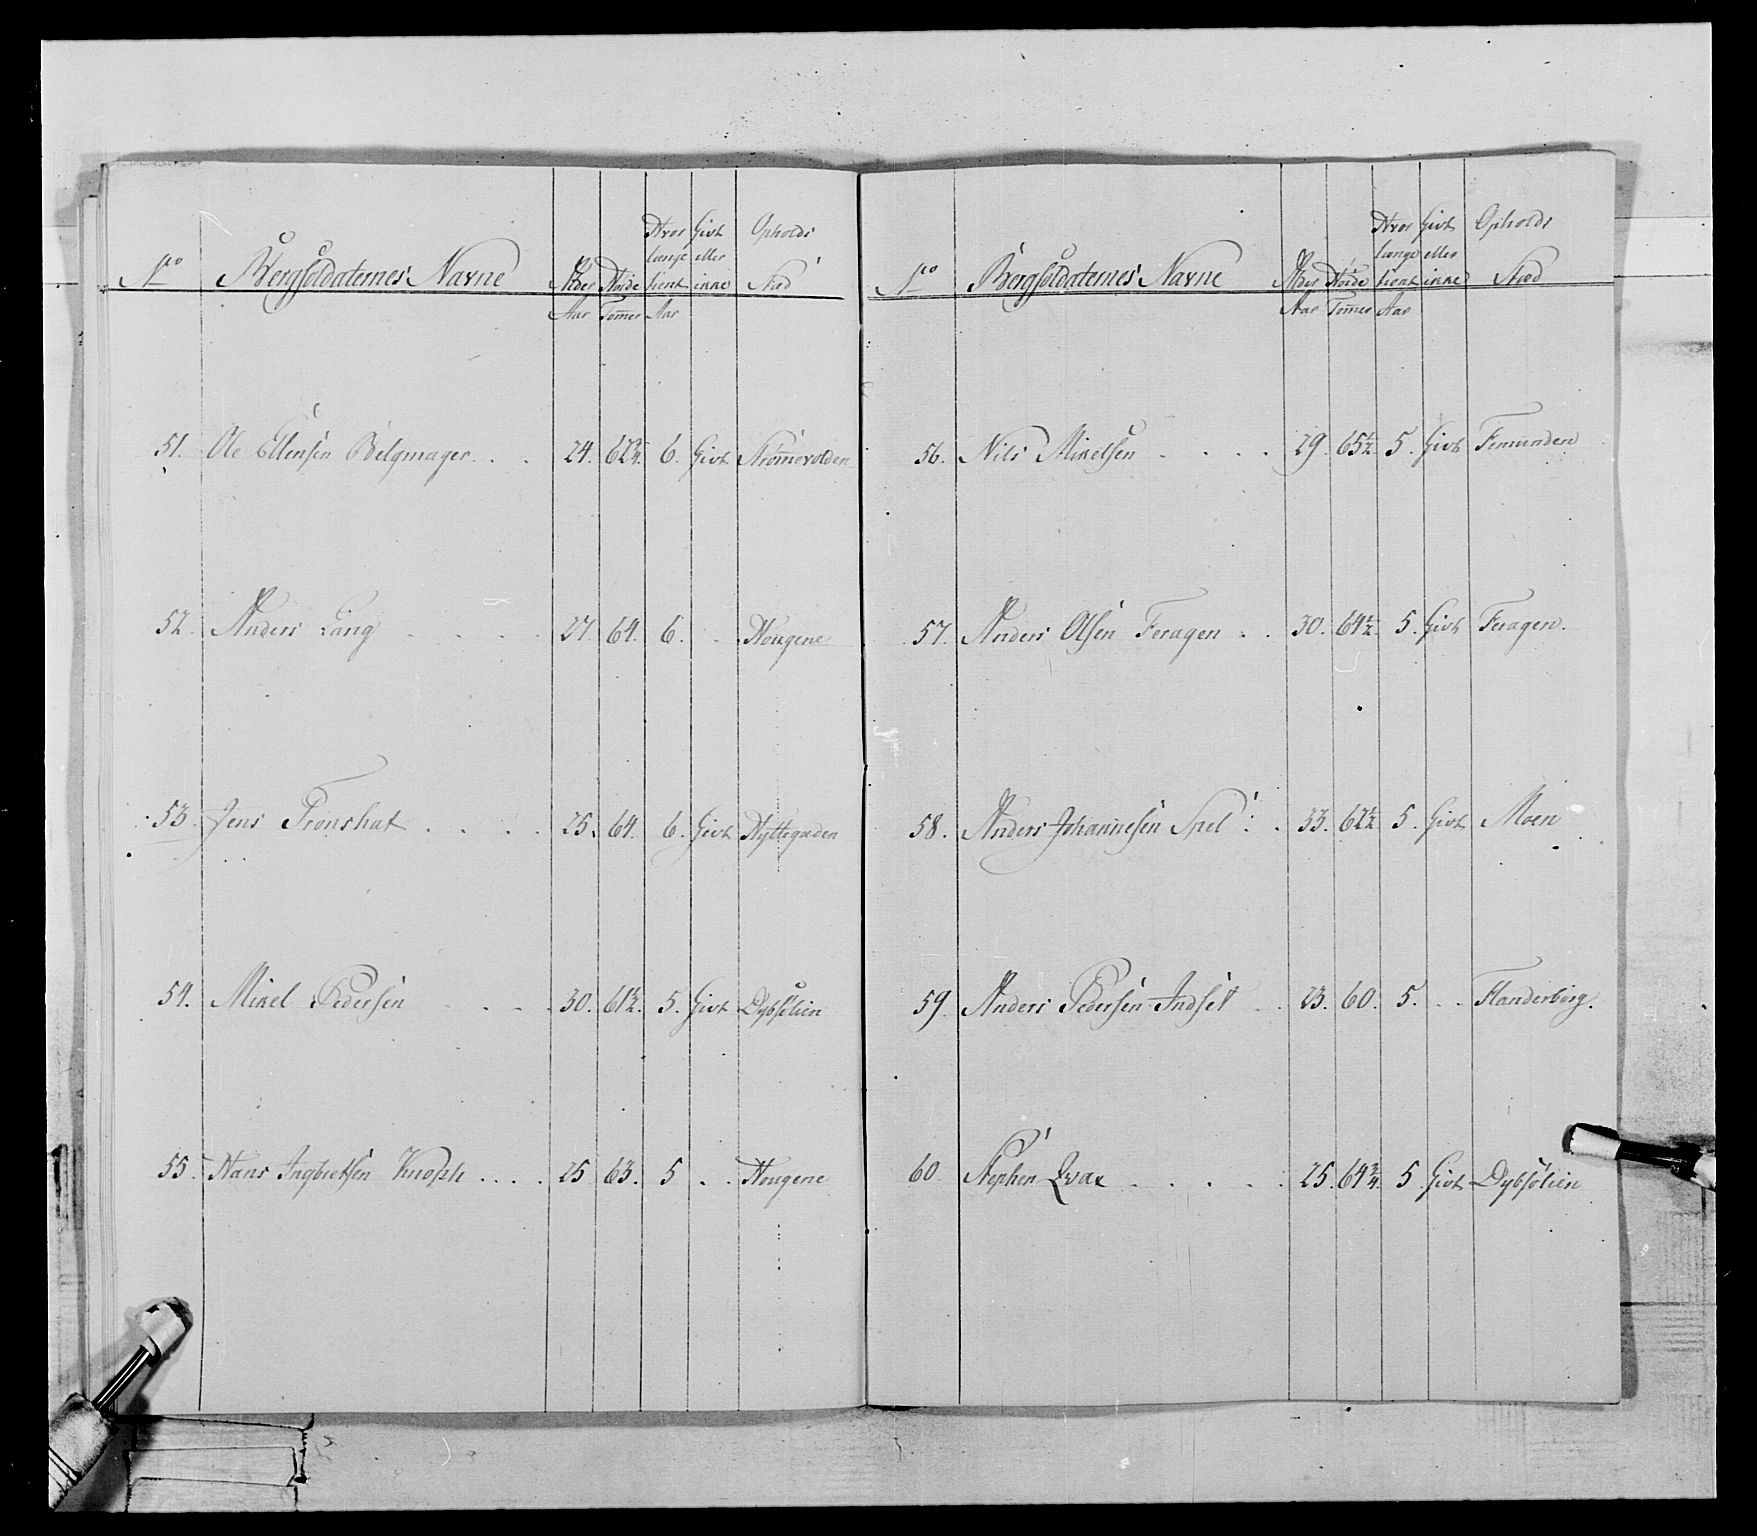 No Bergsoldaternes Navne Alder Høide Hvor længe tient Givt eller ikke Opholds Stæd
Aar Tomer Aar
51. Ole Ellensen Belgmager . . . 24. 62 3/4. 6. Givt Strømevolden
52. Anders Lang . . . . 27. 64. 6. . . Hougene
53. Jens Tronshat . . . . 25. 64. 6. Givt Hyttegaden
54. Mikel Pedersen . . . 30. 61 1/2. 5. Givt Dybsølien
55. Hans Ingbretsen Knoph . . . . 25 63. 5 . . Hougene
No Bergsoldaternes Navne Alder Høide Hvor længe tient Givt eller ikke Opholds Stæd
Aar Tomer Aar
56. Nils Mikelsen . . . . 29. 65 1/2 5. Givt Femunden
57. Anders Olsen Feragen . . 30. 64 1/2. 5. Givt Feragen.
58. Anders Johannesen Spel . . 33. 62 1/2 5. Givt Moen
59. Anders Pedersen Indset . . 23. 60. 5. . . Flanderborg.
60. Stephen Qvax . . . . . 25. 64 3/4. 5 Givt Dybsølien